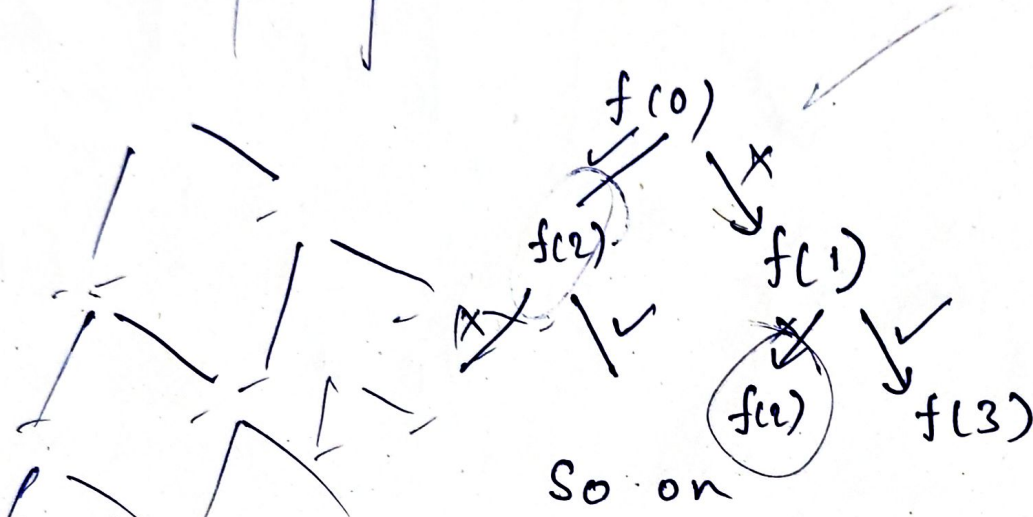 f(0)
✓ x
f(2) f(1)
x ✓ x ✓
f(2) f(3)
So on